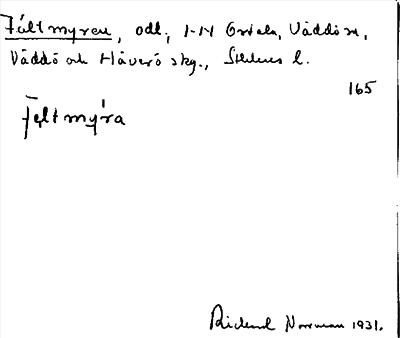 Fältmyren, odl., 1-14 Ortala, Väddö sn,
Väddö och Häverö skg., Sthlms l.
165
Feltmýra
Rickard Norrman 1931.